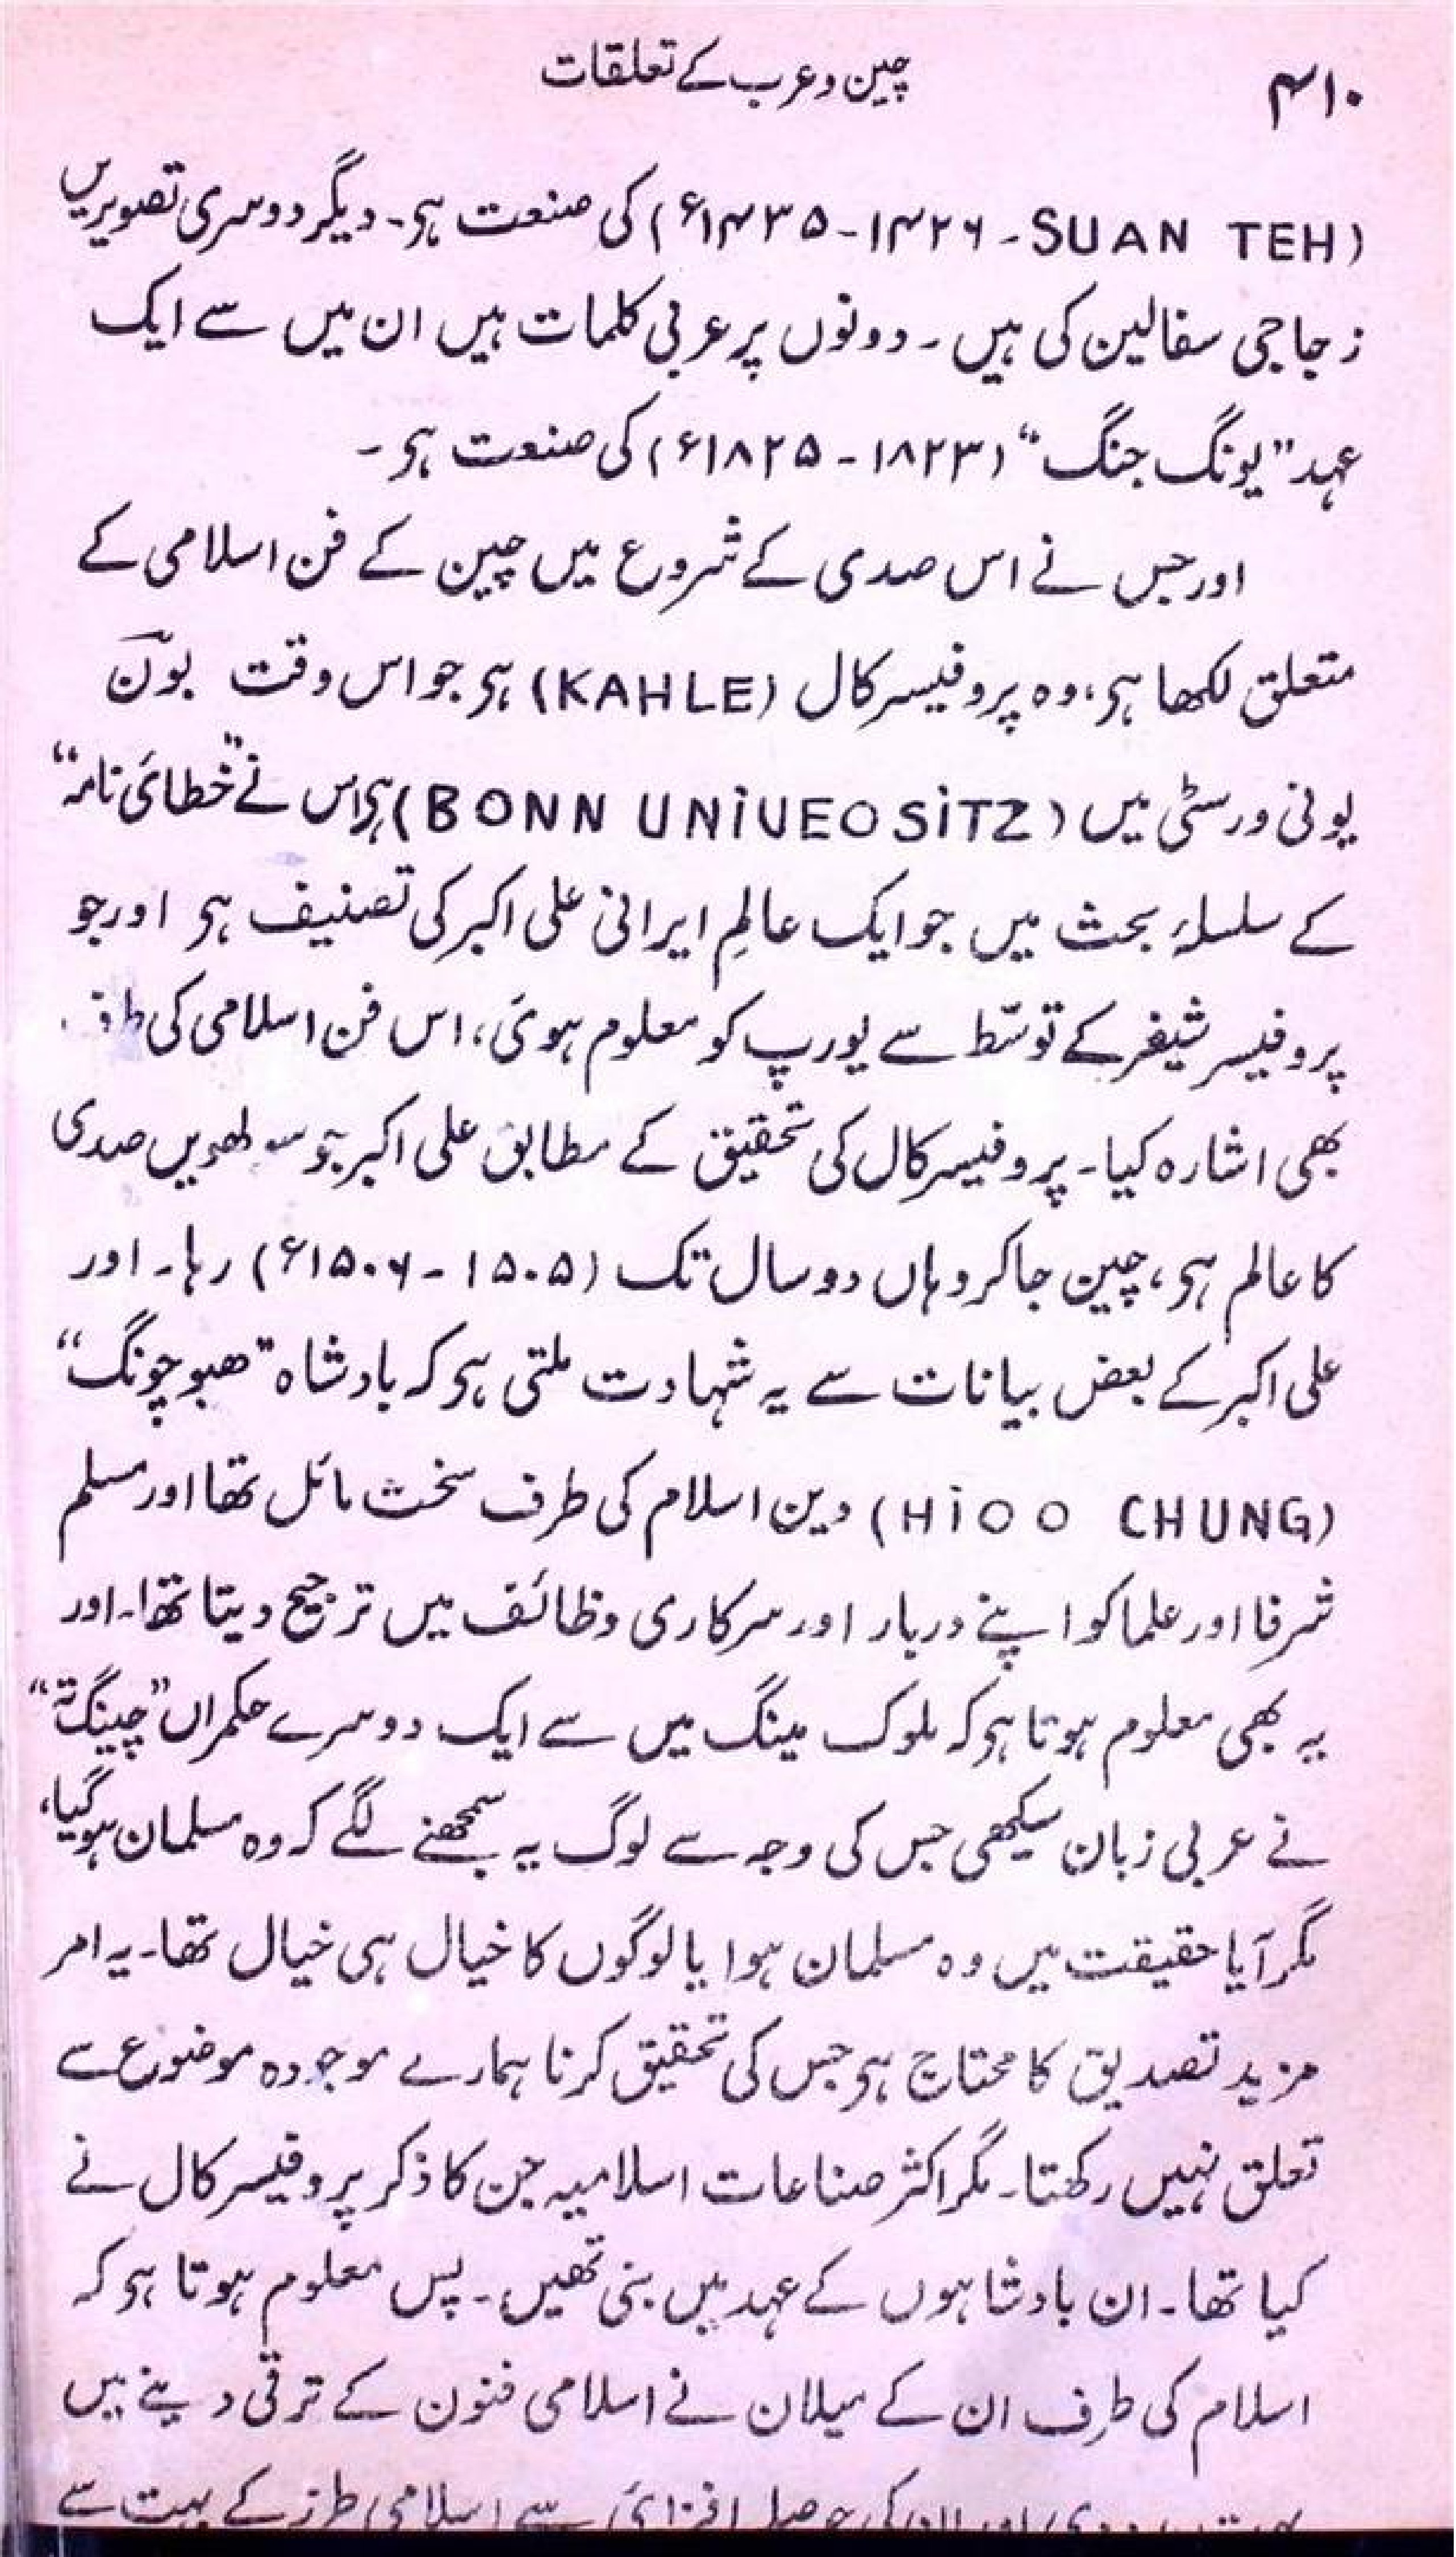 ۴۱۰
چین و عرب کے تعلقات
(SUAN TEH - ۱۴۲۶-۱۴۳۵ء) کی صنعت ہی۔ دیگر دوسری تصویریں
زجاجی سفالین کی ہیں۔ دونوں پر عربی کلمات ہیں ان میں سے ایک
عہد "یونگ جنگ" (۱۸۲۳-۱۸۲۵ء) کی صنعت ہی۔
اور جس نے اس صدی کے شروع میں چین کے فن اسلامی کے
متعلق لکھا ہی، وہ پروفیسر کال (KAHLE) ہی جو اس وقت بون
یونی ورسٹی میں (BONN UNiUEOSiTZ) ہی اس نے "خطائی نامہ"
کے سلسلۂ بحث میں جو ایک عالمِ ایرانی علی اکبر کی تصنیف ہی اور جو
پروفیسر شیفر کے توسّط سے یورپ کو معلوم ہوئی، اس فن اسلامی کی طرف
بھی اشارہ کیا۔ پروفیسر کال کی تحقیق کے مطابق علی اکبر جو سولھویں صدی
کا عالم ہی، چین جا کر وہاں دو سال تک (۱۵۰۵-۱۵۰۶ء) رہا۔ اور
علی اکبر کے بعض بیانات سے یہ شہادت ملتی ہی کہ بادشاہ "ھیو چونگ"
(HiOO CHUNG) دین اسلام کی طرف سخت مائل تھا اور مسلم
شرفا اور علما کو اپنے دربار اور سرکاری وظائف میں ترجیح دیتا تھا۔ اور
یہ بھی معلوم ہوتا ہی کہ ملوک مینگ میں سے ایک دوسرے حکمراں "چینگ تہ"
نے عربی زبان سیکھی جس کی وجہ سے لوگ یہ سمجھنے لگے کہ وہ مسلمان ہوگیا،
مگر آیا حقیقت میں وہ مسلمان ہوا یا لوگوں کا خیال ہی خیال تھا۔ یہ امر
مزید تصدیق کا محتاج ہی جس کی تحقیق کرنا ہمارے موجودہ موضوع سے
تعلق نہیں رکھتا۔ مگر اکثر صناعات اسلامیہ جن کا ذکر پروفیسر کال نے
کیا تھا۔ ان بادشاہوں کے عہد میں بنی تھیں۔ پس معلوم ہوتا ہی کہ
اسلام کی طرف ان کے میلان نے اسلامی فنون کے ترقی دینے میں
بہت مدد دی اور ان کی حوصلہ افزائی سے اسلامی طرز کے بہت سے